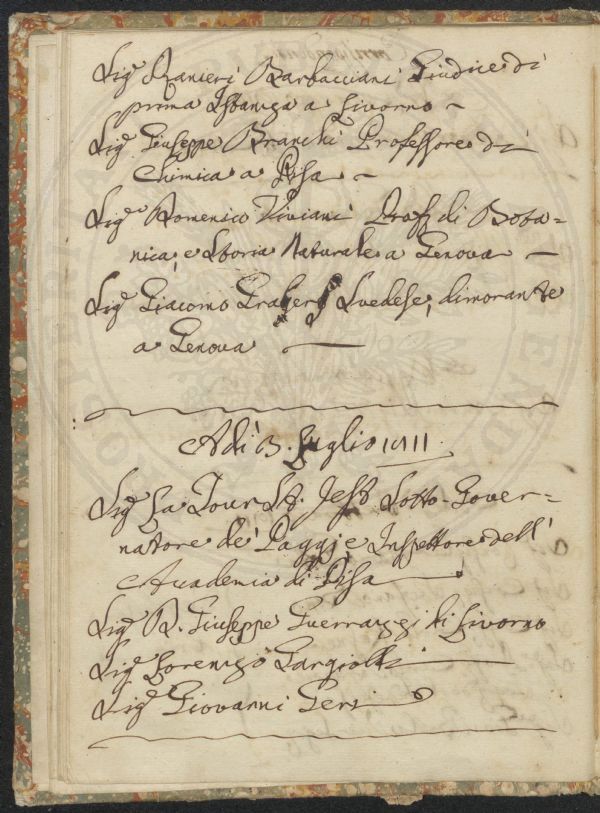 Sig.r Ranieri Barbacciani Giudice di
prima Istanza a Livorno –
Sig.r Giuseppe Branchi Professore di
Chimica a Pisa –
Sig.r Domenico Viviani Prof.r di Bota=
nica, e Storia Naturale a Genova –
Sig.r Giacomo Graberg Svedese, dimorante
a Genova –
Adì 3. Luglio 1811.
Sig.r La Tour St. Jest Sotto-Gover=
natore de' Paggi, e Inspettore dell'
Accademia di Pisa
Sig.r D. Giuseppe Guerrazzi di Livorno
Sig.r Lorenzo Gargiolli
Sig.r Giovanni Geri